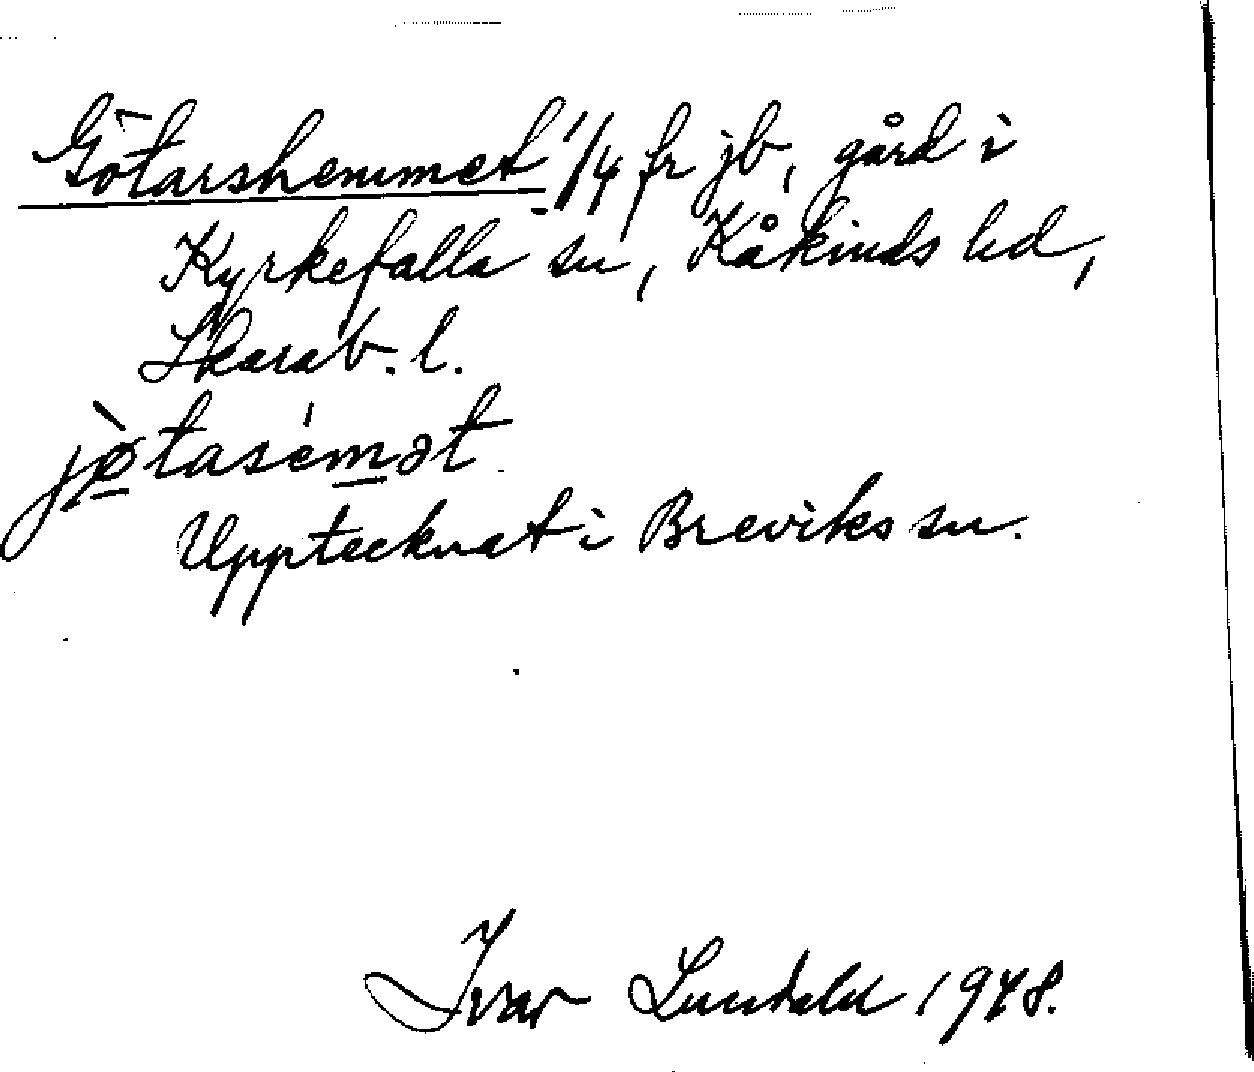 Götarshemmet 1/4 fr jb, gård i
Kyrkefalla sn, Kåkinds hd,
Skarab. l.
jø̀tase̍mət
Upptecknat i Breviks sn.
Ivar Lundahl 1948.